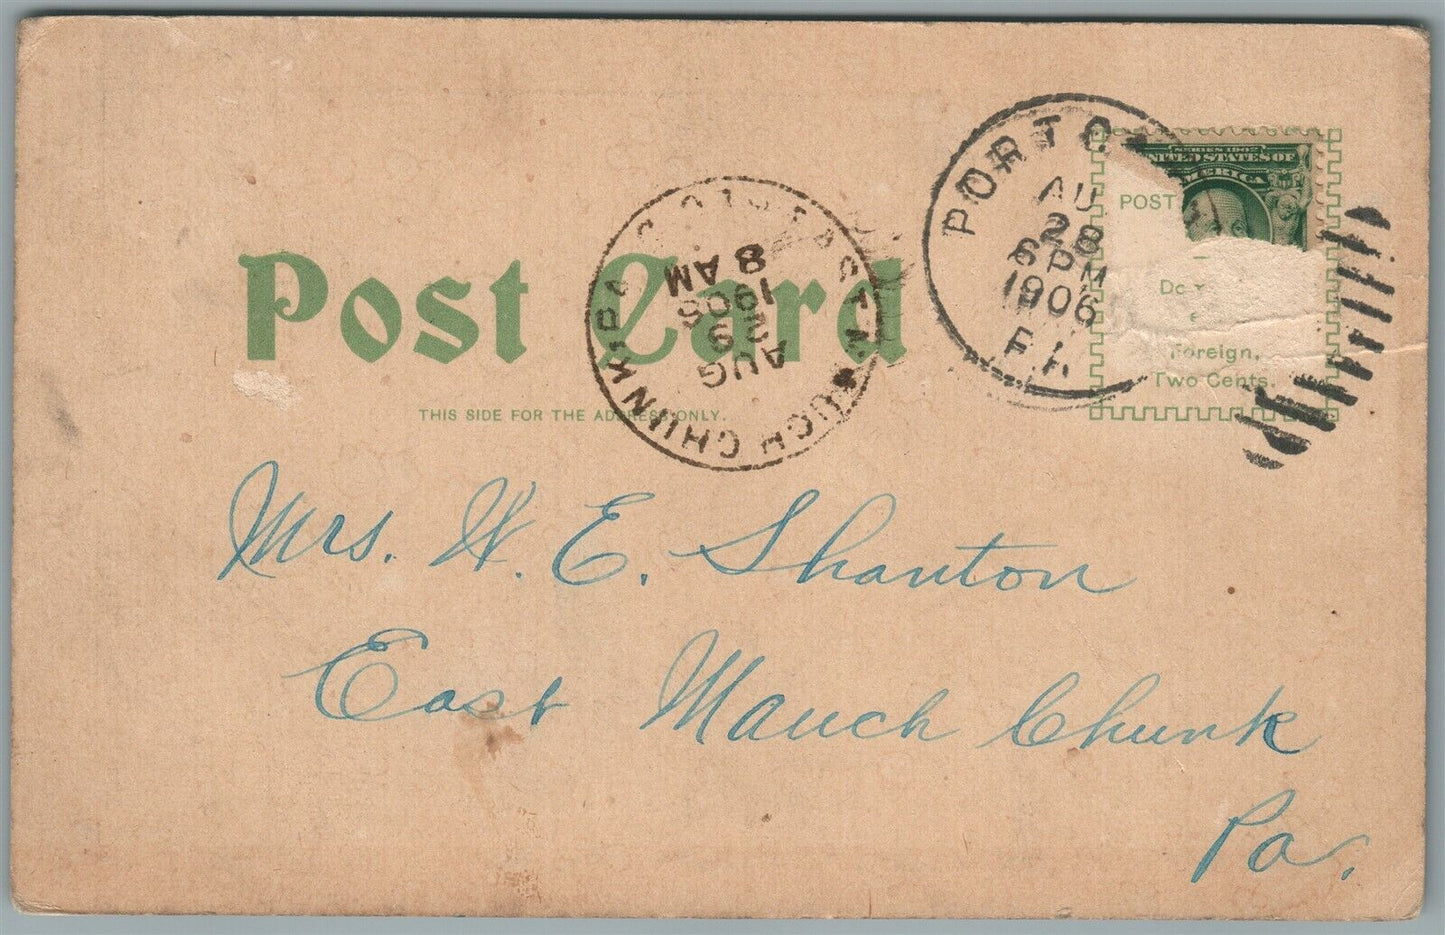 PORTO
AU
28
6 PM
1906
SERIES 1902
UNITED STATES OF
AMERICA
POST
Foreign,
Two Cents.
Post Card
THIS SIDE FOR THE ADDRESS ONLY.
CHUNK, PA.
AUG
29
1906
8 AM
Mrs. W. E. Shanton
East Mauch Chunk
Pa.